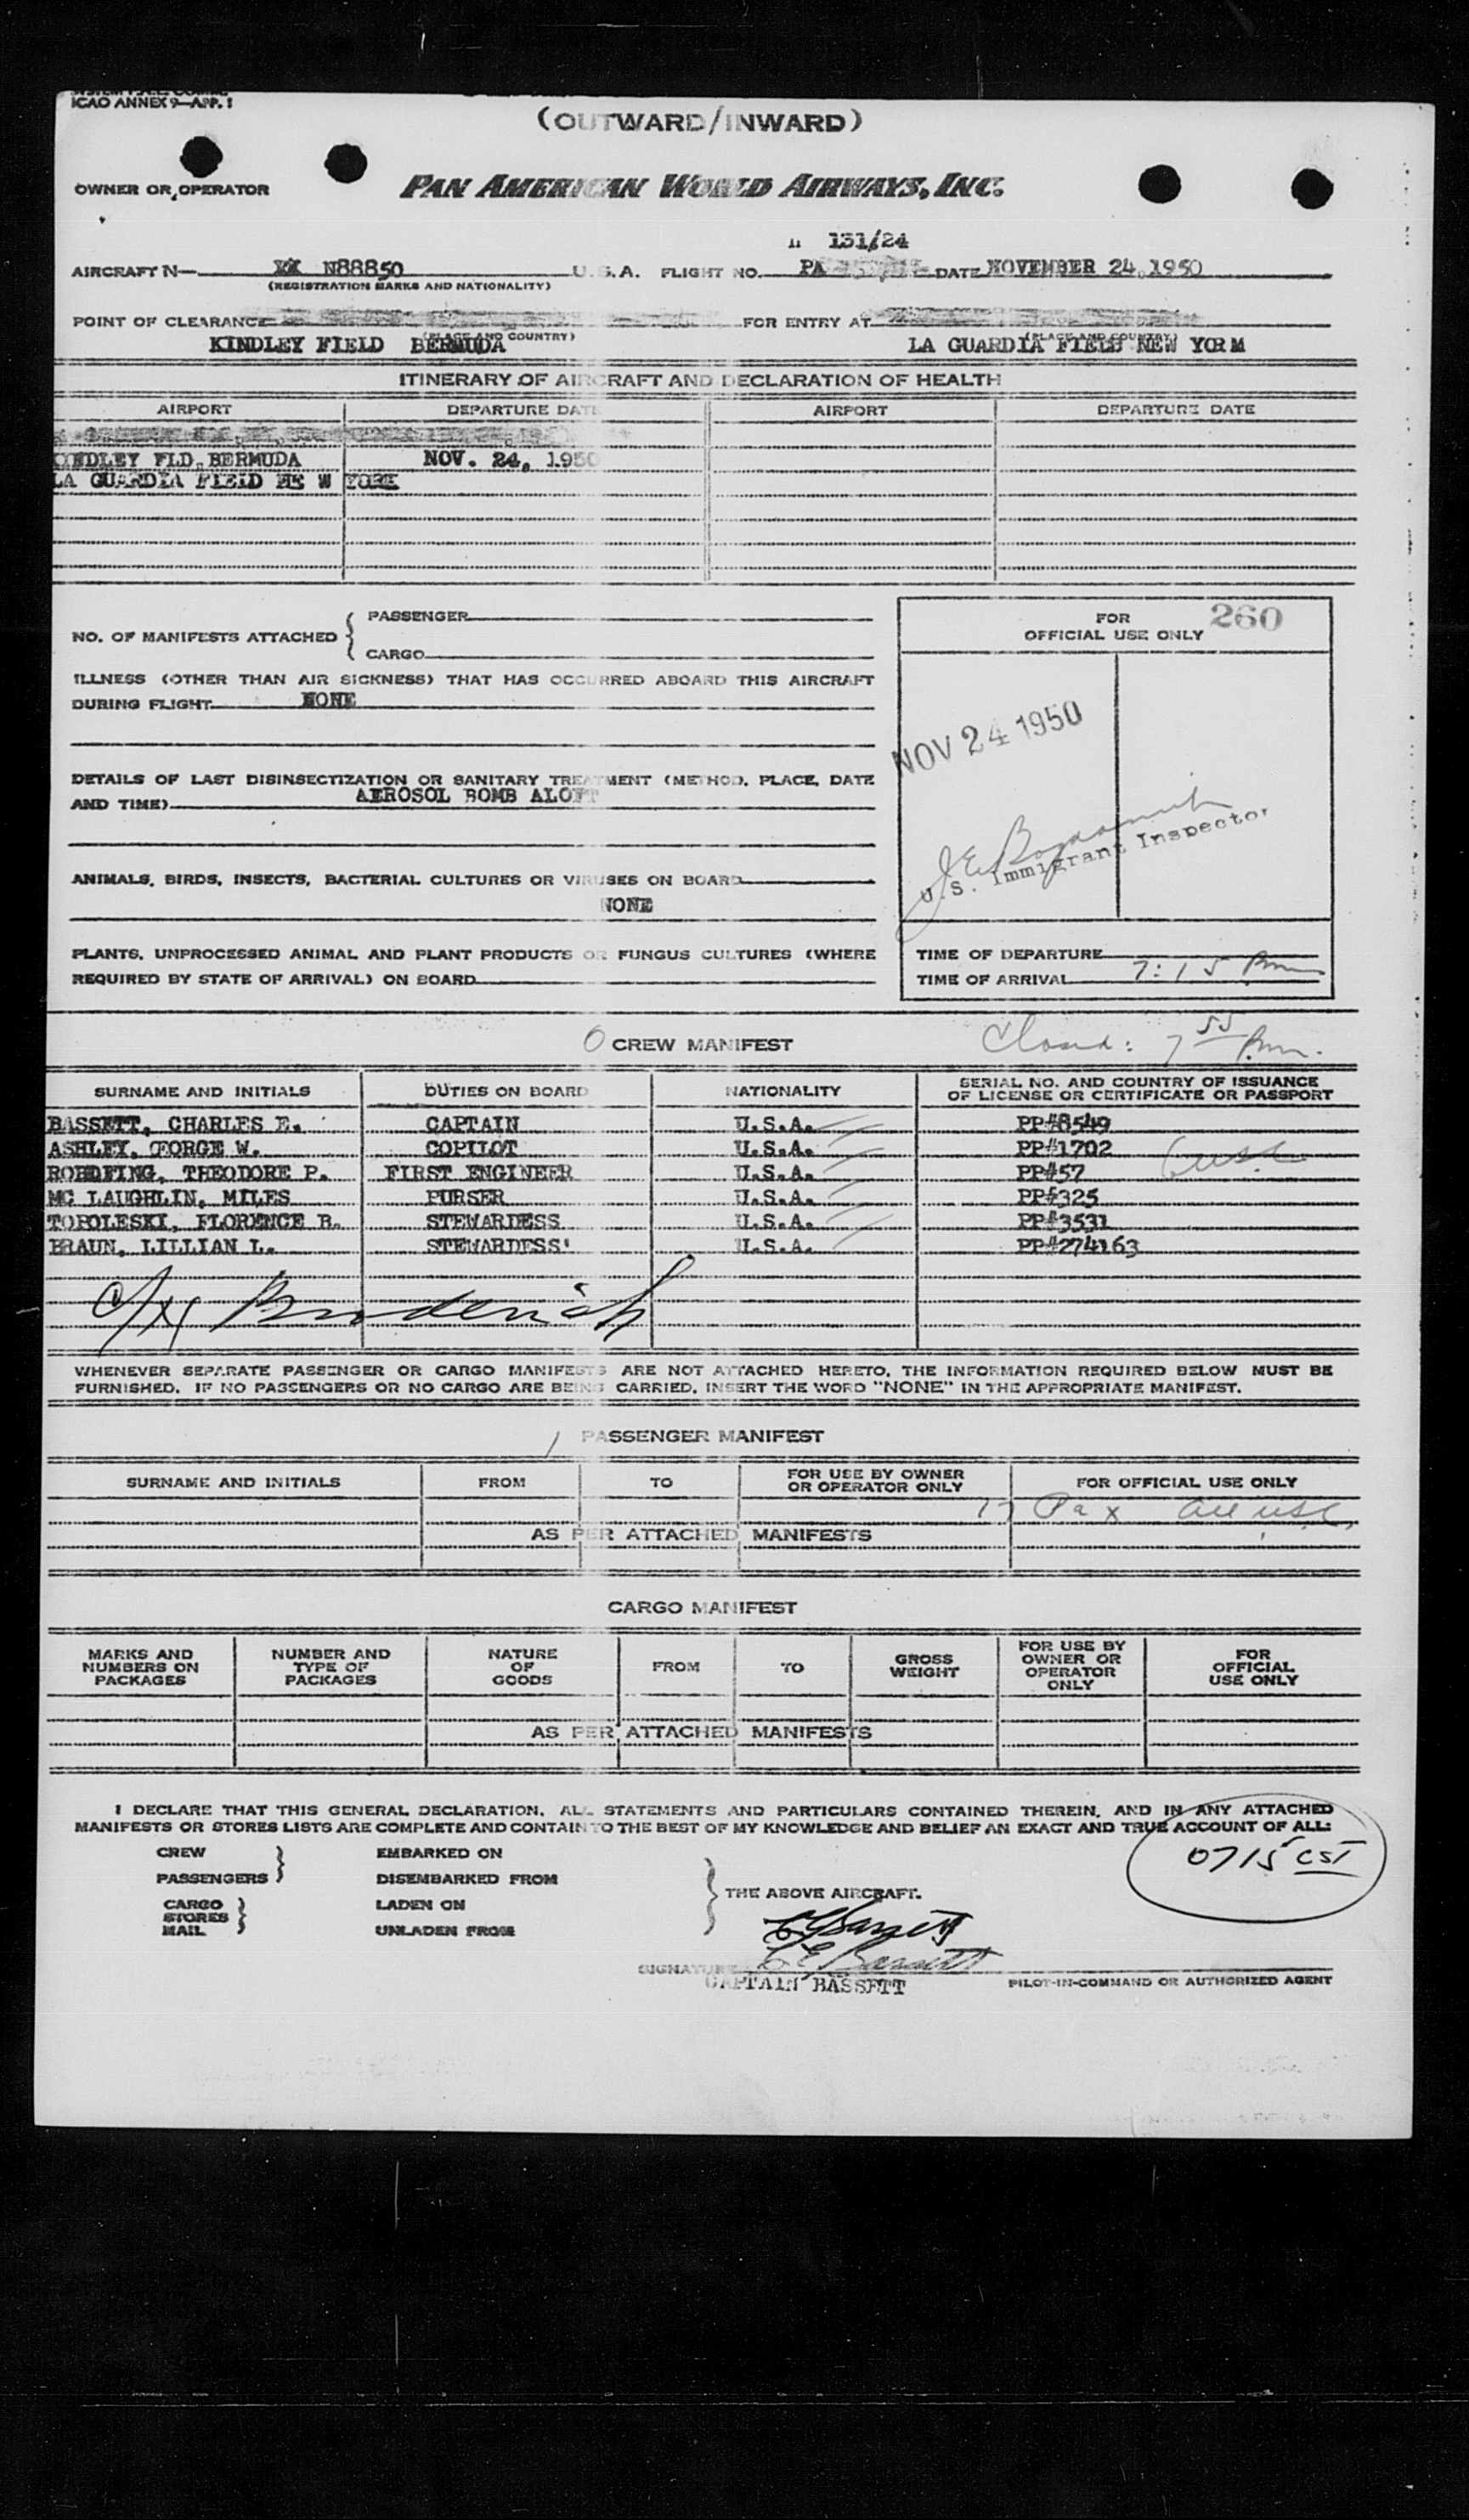 ICAO ANNEX 9—APP. 1
(OUTWARD/INWARD)
OWNER OR OPERATOR PAN AMERICAN WORLD AIRWAYS, INC.
131/24
AIRCRAFT N— N88850 U.S.A. FLIGHT NO. PA DATE NOVEMBER 24, 1950
(REGISTRATION MARKS AND NATIONALITY)
POINT OF CLEARANCE FOR ENTRY AT
(PLACE AND COUNTRY) (PLACE AND COUNTRY)
KINDLEY FIELD BERMUDA LA GUARDIA FIELD NEW YORM
ITINERARY OF AIRCRAFT AND DECLARATION OF HEALTH
AIRPORT DEPARTURE DATE AIRPORT DEPARTURE DATE
KINDLEY FLD. BERMUDA NOV. 24, 1950
LA GUARDIA FIELD NE W YORK
NO. OF MANIFESTS ATTACHED { PASSENGER
CARGO
ILLNESS (OTHER THAN AIR SICKNESS) THAT HAS OCCURRED ABOARD THIS AIRCRAFT
DURING FLIGHT NONE
DETAILS OF LAST DISINSECTIZATION OR SANITARY TREATMENT (METHOD, PLACE, DATE
AND TIME) AEROSOL BOMB ALOFT
ANIMALS, BIRDS, INSECTS, BACTERIAL CULTURES OR VIRUSES ON BOARD
NONE
PLANTS, UNPROCESSED ANIMAL AND PLANT PRODUCTS OR FUNGUS CULTURES (WHERE
REQUIRED BY STATE OF ARRIVAL) ON BOARD
FOR 260
OFFICIAL USE ONLY
NOV 24 1950
U.S. Immigrant Inspector
TIME OF DEPARTURE
TIME OF ARRIVAL 7:15 Pm
O CREW MANIFEST Closed: 7 55 Pm.
SURNAME AND INITIALS DUTIES ON BOARD NATIONALITY SERIAL NO. AND COUNTRY OF ISSUANCE
OF LICENSE OR CERTIFICATE OR PASSPORT
BASSETT, CHARLES E. CAPTAIN U.S.A. PP#8549
ASHLEY, GEORGE W. COPILOT U.S.A. PP#1702
THEODORE P. FIRST ENGINEER U.S.A. PP#57
MC LAUGHLIN, MILES PURSER U.S.A. PP#325
TOPOLESKI, FLORENCE R. STEWARDESS U.S.A. PP#3531
BRAUN, LILLIAN L. STEWARDESS' U.S.A. PP#274163
Broderick
WHENEVER SEPARATE PASSENGER OR CARGO MANIFESTS ARE NOT ATTACHED HERETO, THE INFORMATION REQUIRED BELOW MUST BE
FURNISHED. IF NO PASSENGERS OR NO CARGO ARE BEING CARRIED, INSERT THE WORD "NONE" IN THE APPROPRIATE MANIFEST.
PASSENGER MANIFEST
SURNAME AND INITIALS FROM TO FOR USE BY OWNER
OR OPERATOR ONLY FOR OFFICIAL USE ONLY
17 Pax all USC
AS PER ATTACHED MANIFESTS
CARGO MANIFEST
MARKS AND
NUMBERS ON
PACKAGES NUMBER AND
TYPE OF
PACKAGES NATURE
OF
GOODS FROM TO GROSS
WEIGHT FOR USE BY
OWNER OR
OPERATOR
ONLY FOR
OFFICIAL
USE ONLY
AS PER ATTACHED MANIFESTS
I DECLARE THAT THIS GENERAL DECLARATION, ALL STATEMENTS AND PARTICULARS CONTAINED THEREIN, AND IN ANY ATTACHED
MANIFESTS OR STORES LISTS ARE COMPLETE AND CONTAIN TO THE BEST OF MY KNOWLEDGE AND BELIEF AN EXACT AND TRUE ACCOUNT OF ALL:
CREW EMBARKED ON 0715 CST
PASSENGERS DISEMBARKED FROM
THE ABOVE AIRCRAFT.
CARGO LADEN ON
STORES
MAIL UNLADEN FROM
C E Bassett
SIGNATURE C E Bassett
CAPTAIN BASSETT PILOT-IN-COMMAND OR AUTHORIZED AGENT